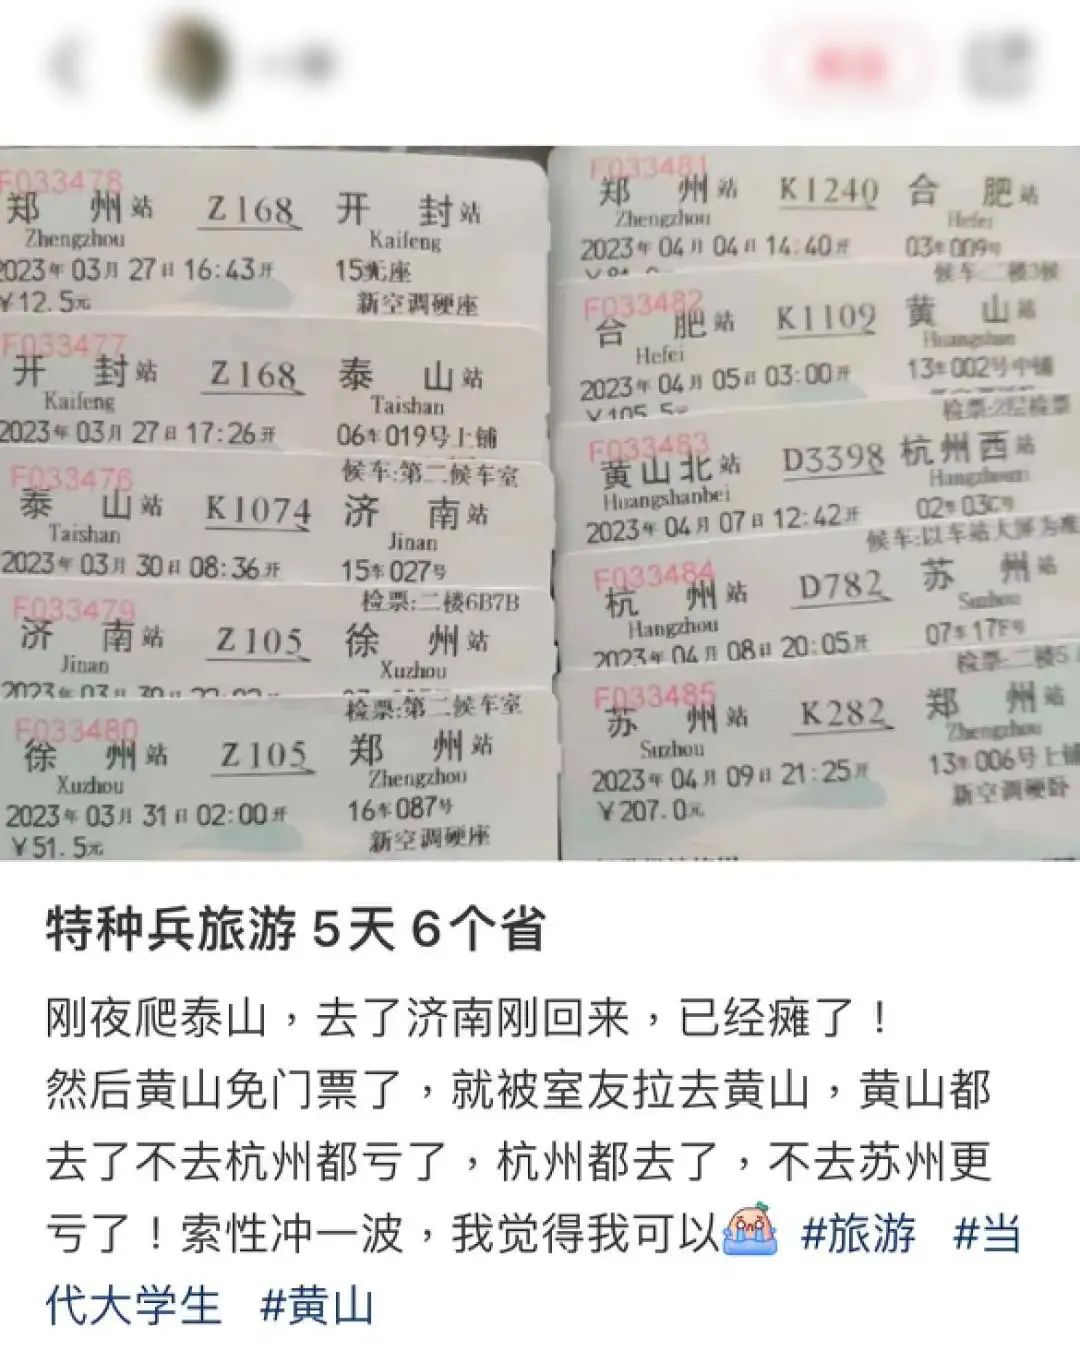 F033478
郑州站 Z168 开封站
Zhengzhou Kaifeng
2023年03月27日16:43开 15无座
¥12.5元 新空调硬座
F033477
开封站 Z168 泰山站
Kaifeng Taishan
2023年03月27日17:26开 06车019号上铺
候车:第二候车室
F033476
泰山站 K1074 济南站
Taishan Jinan
2023年03月30日08:36开 15车027号
检票:二楼6B7B
F033479
济南站 Z105 徐州站
Jinan Xuzhou
检票:第二候车室
F033480
徐州站 Z105 郑州站
Xuzhou Zhengzhou
2023年03月31日02:00开 16车087号
¥51.5元 新空调硬座
F033481
郑州站 K1240 合肥站
Zhengzhou Hefei
2023年04月04日14:40开 03车009号
候车:二楼3候
F033482
合肥站 K1109 黄山站
Hefei Huangshan
2023年04月05日03:00开 13车002号中铺
¥105.5元
检票:2层检票
F033483
黄山北站 D3398 杭州西站
Huangshanbei Hangzhouxi
2023年04月07日12:42开 02车03C号
候车:以车站大屏为准
F033484
杭州站 D782 苏州站
Hangzhou Suzhou
2023年04月08日20:05开 07车17F号
检票:二楼5
F033485
苏州站 K282 郑州站
Suzhou Zhengzhou
2023年04月09日21:25开 13车006号上铺
¥207.0元 新空调硬卧
特种兵旅游 5天 6个省
刚夜爬泰山，去了济南刚回来，已经瘫了！
然后黄山免门票了，就被室友拉去黄山，黄山都
去了不去杭州都亏了，杭州都去了，不去苏州更
亏了！索性冲一波，我觉得我可以 #旅游 #当
代大学生 #黄山